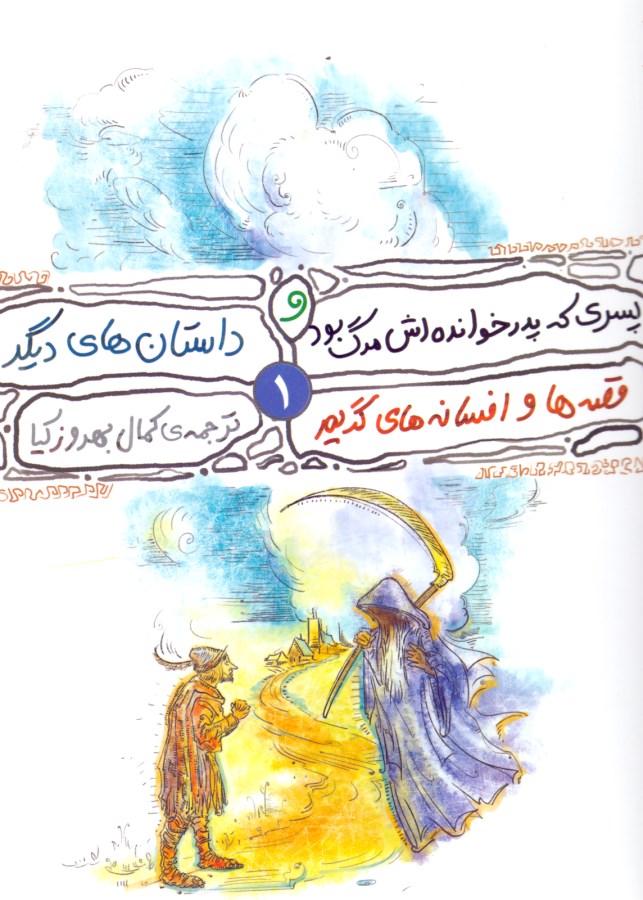 پسری که پدرخوانده‌اش مرگ بود و داستان‌های دیگر
۱
قصه‌ها و افسانه‌های گریم
ترجمه‌ی کمال بهروزکیا